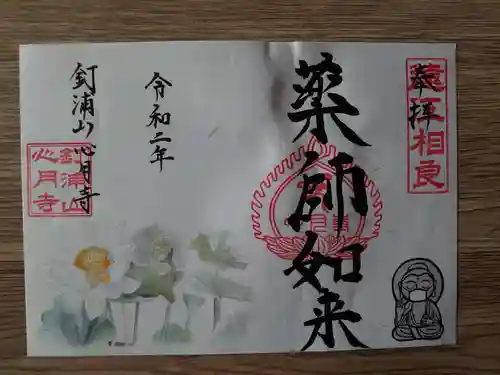 奉拝
遠江相良
薬師如来
令和二年
釘浦山心月寺
釘浦山
心月寺